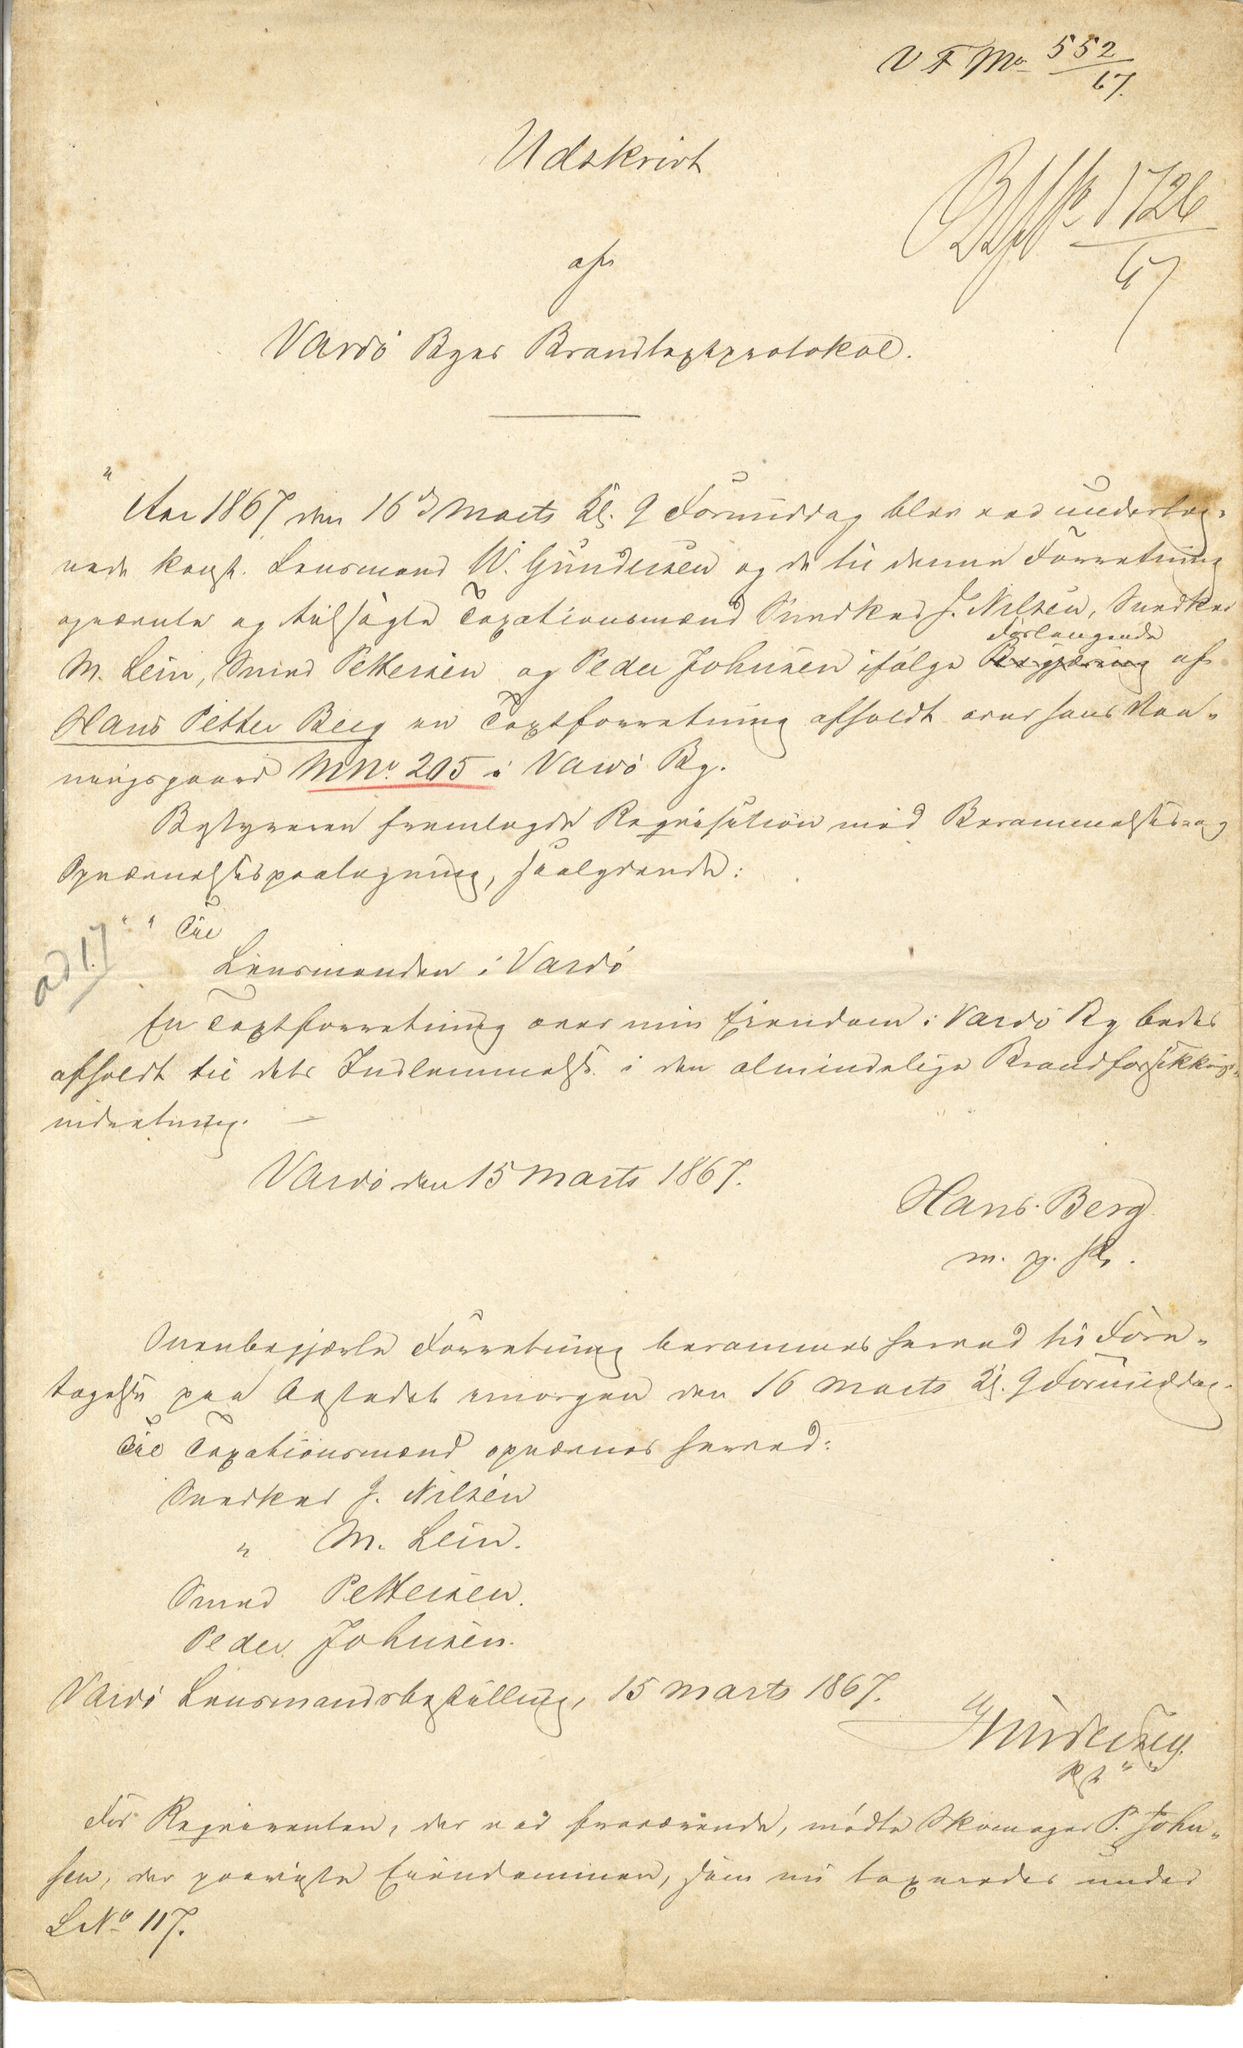 V F No 552/67.
Udskrivt
1726/67
af
Vardö Byes Brandtaxtprotokol.
" Aar 1867 den 16de Marts Kl. 9 Formiddag blev ved underteg-
nede konst. Lensmand W. Gundersen og de til denne Forretning
opnævnte og tilsagte Taxationsmænd Snedker J. Nilsen, Snedker
Forlangende
M. Lein, Smed Pettersen og Peder Johnsen ifølge Begjæring af
Hans Petter Berg en Taxtforretning afholdt over hans Vaa-
ningsgaard MNo. 205 i Vardö By.
Bestyreren fremlagde Reqvisition med Berammelses- og
Opnævnelsespaategning, saalydende:
ad 17 " " Til
Lensmanden i Vardö
En Taxtforretning over min Eiendom i Vardö By bedes
afholdt til dets Indlemmelse i den almindelige Brandforsikkrings-
indretning. —
Vardö den 15 Marts 1867.
Hans Berg
m. p. P.
Ovenbegjærte Forretning berammes herved til Fore-
tagelse paa Aastedet imorgen den 16 Marts Kl. 9 Formiddag.
Til Taxationsmænd opnævnes herved:
Snedker J. Nilsen
" M. Lein.
Smed Pettersen.
Peder Johnsen.
Vardö Lensmandsbestilling, 15 Marts 1867.
Gundersen.
kst
For Reqvirenten, der var fraværende, mødte Skomager P. John-
sen, der paaviste Eiendommen, som nu taxeredes under
LNo 117.